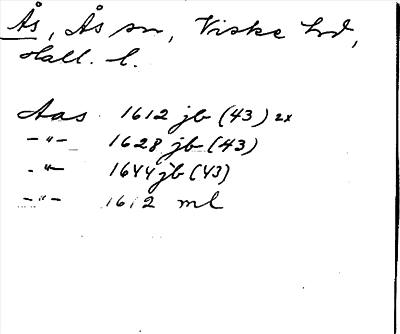 Ås, Ås sn, Viske hd,
Hall. l.
Aas 1612 jb (43) 2x
-"- 1628 jb (43)
-"- 1644 jb (43)
-"- 1612 ml